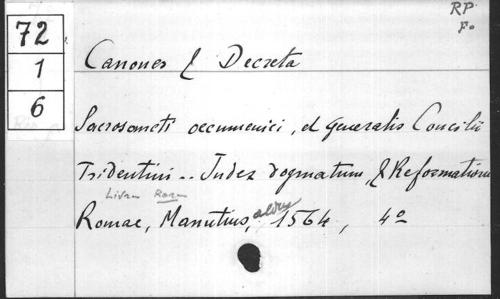 RP
F.
72
1
6
Canones & Decreta
Sacrosancti oecumenici, et generalis Concilii
Tridentini .. Index dogmatum, & Reformationis
Romae, Manutius, aldus 1564, 4º